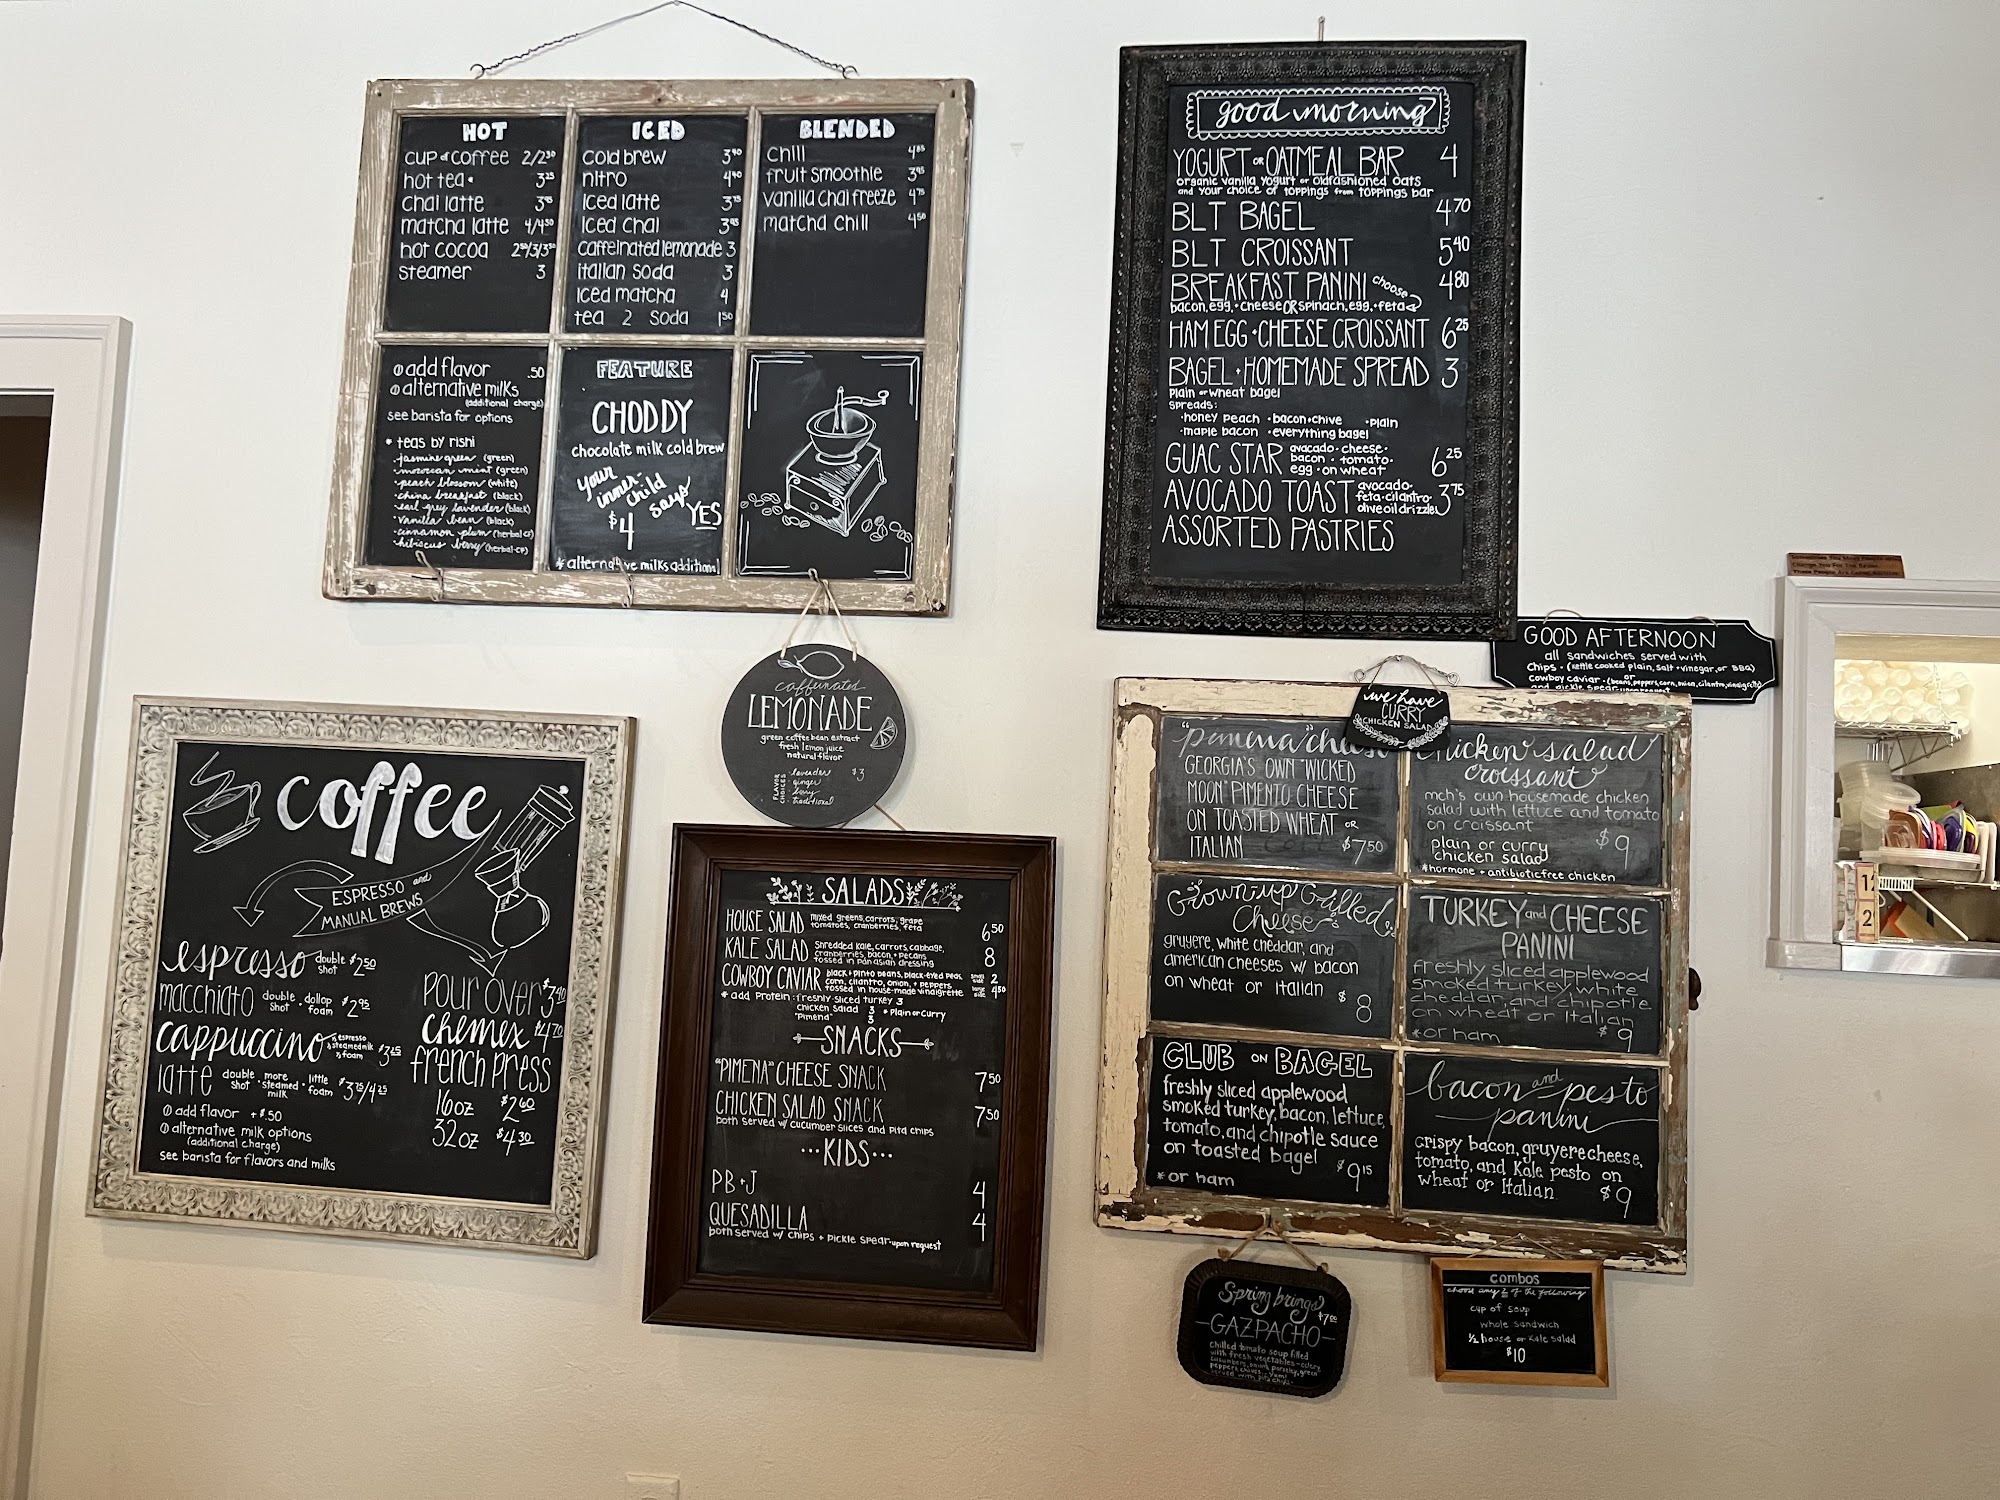 HOT
cup of coffee 2/2³⁰
hot tea* 3²⁵
chai latte 3⁹⁵
matcha latte 4/4⁵⁰
hot cocoa 2⁵⁰/3/3⁵⁰
steamer 3
ICED
cold brew 3⁹⁰
nitro 4⁹⁰
Iced latte 3⁷⁵
Iced chai 3⁹⁵
caffeinated lemonade 3
italian soda 3
Iced matcha 4
tea 2 soda 1⁵⁰
BLENDED
chill 4⁸⁵
fruit smoothie 3⁹⁵
vanilla chai freeze 4⁷⁵
matcha chill 4⁵⁰
add flavor .50
alternative milks
(additional charge)
see barista for options
* teas by rishi
• jasmine green (green)
• moroccan mint (green)
• peach blossom (white)
• china breakfast (black)
• earl grey lavender (black)
• vanilla bean (black)
• cinnamon plum (herbal-cf)
• hibiscus berry (herbal-cf)
FEATURE
CHODDY
chocolate milk cold brew
your
inner-
child
says
YES
$4
*alternative milks additional
good morning
YOGURT OR OATMEAL BAR 4
organic vanilla yogurt or oldfashioned oats
and your choice of toppings from toppings bar
BLT BAGEL 4⁷⁰
BLT CROISSANT 5⁴⁰
BREAKFAST PANINI choose 4⁸⁰
bacon, egg + cheese OR spinach, egg + feta
HAM EGG + CHEESE CROISSANT 6²⁵
BAGEL + HOMEMADE SPREAD 3
plain or wheat bagel
spreads:
•honey peach •bacon+chive •plain
•maple bacon •everything bagel
GUAC STAR avacado•cheese• bacon•tomato• egg•on wheat 6²⁵
AVOCADO TOAST avocado• feta•cilantro• olive oil drizzle 3⁷⁵
ASSORTED PASTRIES
GOOD AFTERNOON
all sandwiches served with
chips • (kettle cooked plain, salt + vinegar, or BBQ)
or
cowboy caviar • (beans, peppers, corn, onion, cilantro, vinaigrette)
and pickle spear-upon request
caffeinated
LEMONADE
green coffee bean extract
fresh lemon juice
natural flavor
FLAVOR CHOICES
• lavender $3
• ginger
• berry
• traditional
coffee
ESPRESSO and
MANUAL BREWS
espresso double shot $2⁵⁰
macchiato double shot • dollop foam $2⁹⁵
cappuccino ⅓ espresso ⅓ steamed milk ⅓ foam $3²⁵
latte double shot • more steamed milk • little foam $3⁷⁵/4²⁵
add flavor +$.50
alternative milk options
(additional charge)
see barista for flavors and milks
pour over $3⁴⁰
chemex $4⁷⁰
french press
16oz $2⁶⁰
32oz $4³⁰
SALADS
HOUSE SALAD mixed greens, carrots, grape tomatoes, cranberries, feta 6⁵⁰
KALE SALAD shredded kale, carrots, cabbage, cranberries, bacon + pecans tossed in pan asian dressing 8
COWBOY CAVIAR black + pinto beans, black-eyed peas, corn, cilantro, onion, + peppers tossed in house-made vinaigrette small side 2 large side 4⁵⁰
* add protein: freshly sliced turkey 3
chicken salad 3 *plain or curry
"pimena" 3
SNACKS
"PIMENA" CHEESE SNACK 7⁵⁰
CHICKEN SALAD SNACK 7⁵⁰
both served w/ cucumber slices and pita chips
•••KIDS•••
PB+J 4
QUESADILLA 4
both served w/ chips + pickle spear-upon request
we have
CURRY
CHICKEN SALAD
"pimena" cheese
GEORGIA'S OWN "WICKED
MOON" PIMENTO CHEESE
ON TOASTED WHEAT OR
ITALIAN $7⁵⁰
chicken salad
croissant
mch's own housemade chicken
salad with lettuce and tomato
on croissant
plain or curry
chicken salad $9
*hormone + antibiotic free chicken
Grown-up Grilled
Cheese
gruyere, white cheddar, and
american cheeses w/ bacon
on wheat or Italian $8
TURKEY and CHEESE
PANINI
freshly sliced applewood
smoked turkey, white
cheddar, and chipotle
on wheat or Italian
*or ham $9
CLUB ON BAGEL
freshly sliced applewood
smoked turkey, bacon, lettuce,
tomato, and chipotle sauce
on toasted bagel $9¹⁵
*or ham
bacon and pesto
panini
crispy bacon, gruyere cheese,
tomato, and kale pesto on
wheat or Italian $9
Spring brings
$7.00
GAZPACHO
chilled tomato soup filled
with fresh vegetables-celery
cucumbers, onion, parsley, green
served with pita chips
combos
choose any 2 of the following
cup of soup
whole sandwich
½ house or kale salad
$10